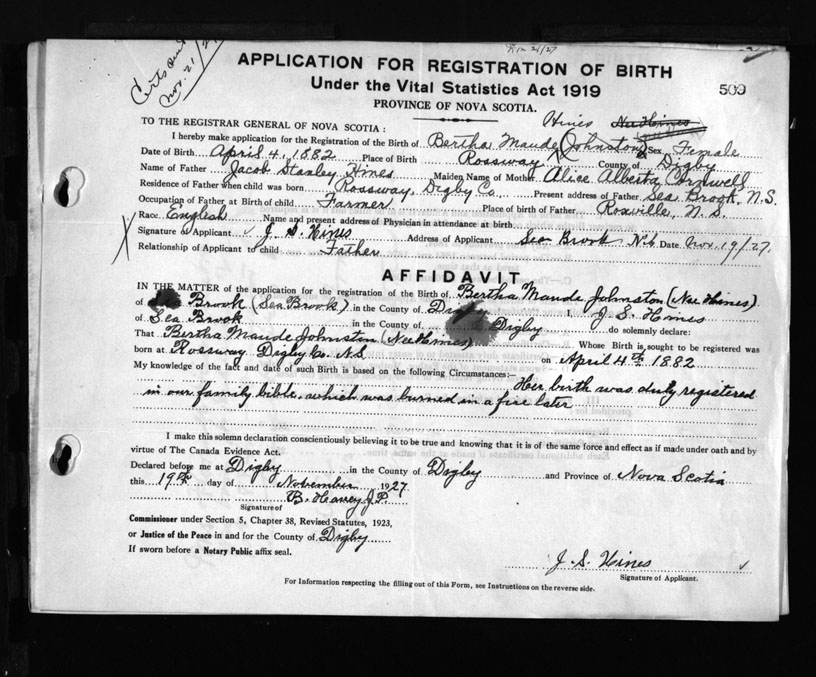 Nov 21/27
Certs and
nov. 21/27
APPLICATION FOR REGISTRATION OF BIRTH
Under the Vital Statistics Act 1919
509
PROVINCE OF NOVA SCOTIA.
TO THE REGISTRAR GENERAL OF NOVA SCOTIA :
Hines Nee Hines
I hereby make application for the Registration of the Birth of Bertha Maude Johnston Sex Female
Date of Birth April 4, 1882 Place of Birth Rossway County of Digby
Name of Father Jacob Stanley Hines Maiden Name of Mother Alice Alberta Cornwell
Residence of Father when child was born Rossway, Digby Co. Present address of Father Sea Brook, N.S.
Occupation of Father at Birth of child Farmer Place of birth of Father Roxville, N.S.
Race English Name and present address of Physician in attendance at birth
Signature of Applicant J. S. Hines Address of Applicant Sea Brook N.S. Date Nov. 19/27.
Relationship of Applicant to child Father
AFFIDAVIT
IN THE MATTER of the application for the registration of the Birth of Bertha Maude Johnston (Nee Hines)
of Brook (Sea Brook) in the County of I, J. S. Hines
of Sea Brook in the County of Digby do solemnly declare:
That Bertha Maude Johnston (Nee Hines) Whose Birth is sought to be registered was
born at Rossway Digby Co. N.S. on April 4th 1882
My knowledge of the fact and date of such Birth is based on the following Circumstances:—
Her birth was duly registered
in our family bible, which was burned in a fire later
I make this solemn declaration conscientiously believing it to be true and knowing that it is of the same force and effect as if made under oath and by
virtue of The Canada Evidence Act.
Declared before me at Digby in the County of Digby and Province of Nova Scotia
this 19th day of November 1927
B. Havey J.P.
Signature of
Commissioner under Section 5, Chapter 38, Revised Statutes, 1923,
or Justice of the Peace in and for the County of Digby
If sworn before a Notary Public affix seal.
J. S. Hines
Signature of Applicant.
For Information respecting the filling out of this Form, see Instructions on the reverse side.